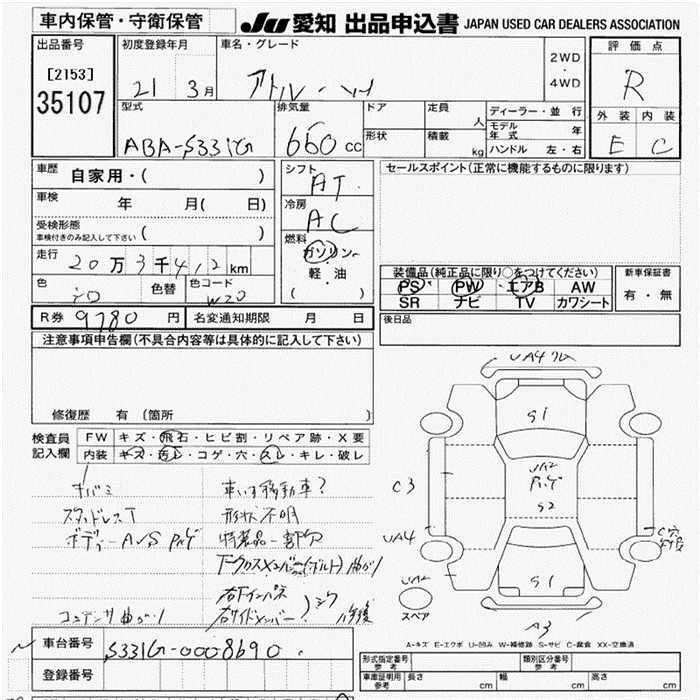 車内保管・守衛保管
JU 愛知 出品申込書 JAPAN USED CAR DEALERS ASSOCIATION
出品番号
[2153]
35107
初度登録年月
21 3月
車名・グレード
2WD
・
4WD
評価点
R
型式
ABA-S331G
排気量
660 cc
ドア
定員
人
形状
積載
kg
ディーラー・並行
モデル年式 年
ハンドル 左・右
外装 内装
E C
車歴
自家用・( )
車検
年 月( 日)
受検形態
車検付きのみ記入して下さい ( )
走行
20万3千412km
色
シロ
色替
色コード
W20
シフト
AT
冷房
AC
燃料
ガソリン
軽・油
( )
セールスポイント(正常に機能するものに限ります)
装備品(純正品に限り○をつけてください)
PS PW エアB AW
SR ナビ TV カワシート
新車保証書
有・無
R券 9780 円
名変通知期限 月 日
後日品
注意事項申告欄(不具合内容等は具体的に記入して下さい)
修復歴 有(箇所
検査員記入欄
FW キズ・飛石・ヒビ割・リペア跡・X要
内装 キズ・汚レ・コゲ・穴・スレ・キレ・破レ
キバミ
スタッドレスT
車いす移動車?
形状不明
特装品一部欠
コンデンサ曲がり
右サイドメンバー
修復
UA4
S1
UA2
S2
C3
UA4
C穴
S1
UA2
スペア
A3
A-キズ E-エクボ U-凹み W-補修跡 S-サビ C-腐食 XX-交換済
車台番号
S331G-0008690
登録番号
形式指定番号
参考
類別区分番号
参考
車庫証明用
参考
長さ cm
幅 cm
高さ cm